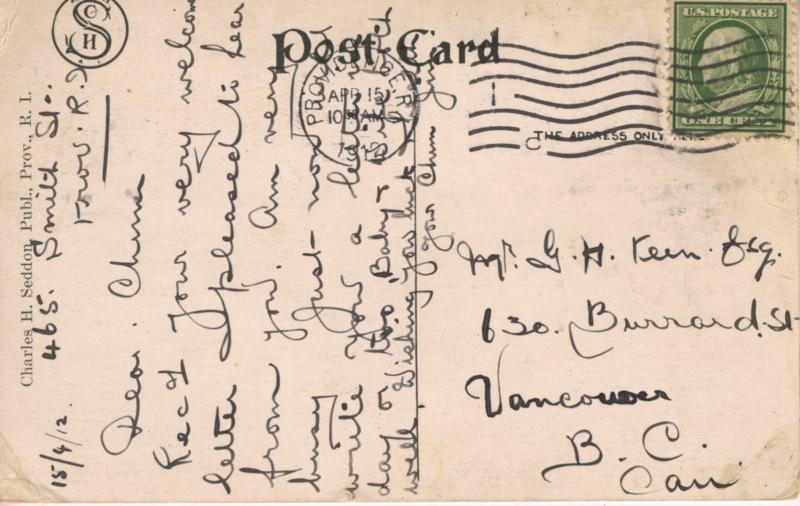 Post Card
U.S. POSTAGE
ONE CENT
PROVIDENCE R.I.
APR 15
10 30 AM
1912
THE ADDRESS ONLY HERE
Mr. G. H. Keen. Esq.
630. Burrard. St-
Vancouver
B. C.
Can.
S C H
Charles H. Seddon, Publ., Prov., R. I.
15/4/12. 465. Smith St.
Prov. R. I.
Dear. Chum
Rec'd Your very welcome
letter & pleased to hear
from You. Am very
busy Just now
write You a letter
day or two. Baby
well. Wishing you luck
Your Chum